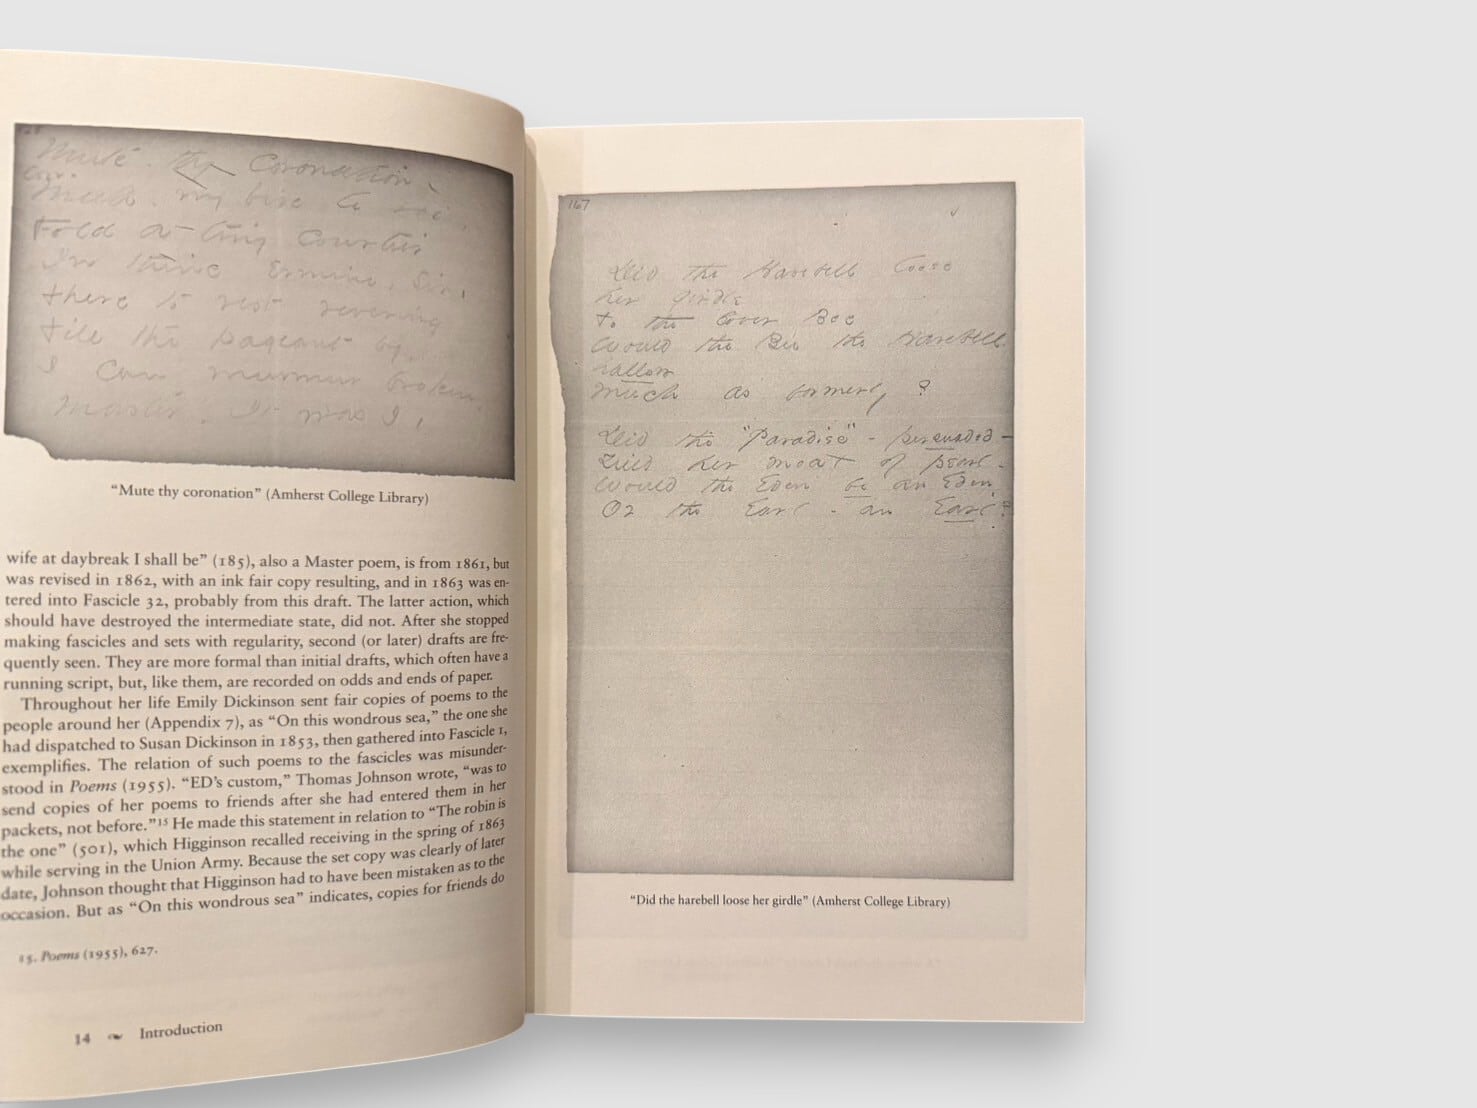 Mute thy Coronation -
Meek my
Fold a tiny courtier
In thine Ermine, Sir,
there to rest revering
till the pageant by,
I can murmur broken,
Master, It was I,
"Mute thy coronation" (Amherst College Library)
wife at daybreak I shall be" (185), also a Master poem, is from 1861, but
was revised in 1862, with an ink fair copy resulting, and in 1863 was en-
tered into Fascicle 32, probably from this draft. The latter action, which
should have destroyed the intermediate state, did not. After she stopped
making fascicles and sets with regularity, second (or later) drafts are fre-
quently seen. They are more formal than initial drafts, which often have a
running script, but, like them, are recorded on odds and ends of paper.
Throughout her life Emily Dickinson sent fair copies of poems to the
people around her (Appendix 7), as "On this wondrous sea," the one she
had dispatched to Susan Dickinson in 1853, then gathered into Fascicle 1,
exemplifies. The relation of such poems to the fascicles was misunder-
stood in Poems (1955). "ED's custom," Thomas Johnson wrote, "was to
send copies of her poems to friends after she had entered them in her
packets, not before."15 He made this statement in relation to "The robin is
the one" (501), which Higginson recalled receiving in the spring of 1863
while serving in the Union Army. Because the set copy was clearly of later
date, Johnson thought that Higginson had to have been mistaken as to the
occasion. But as "On this wondrous sea" indicates, copies for friends do
15. Poems (1955), 627.
14 Introduction
167
Did the Harebell loose
her girdle
to the lover Bee
Would the Bee the Harebell
hallow
Much as formerly?
Did the "Paradise" - persuaded -
Yield her moat of pearl -
Would the Eden be an Eden,
Or the Earl - an Earl?
"Did the harebell loose her girdle" (Amherst College Library)